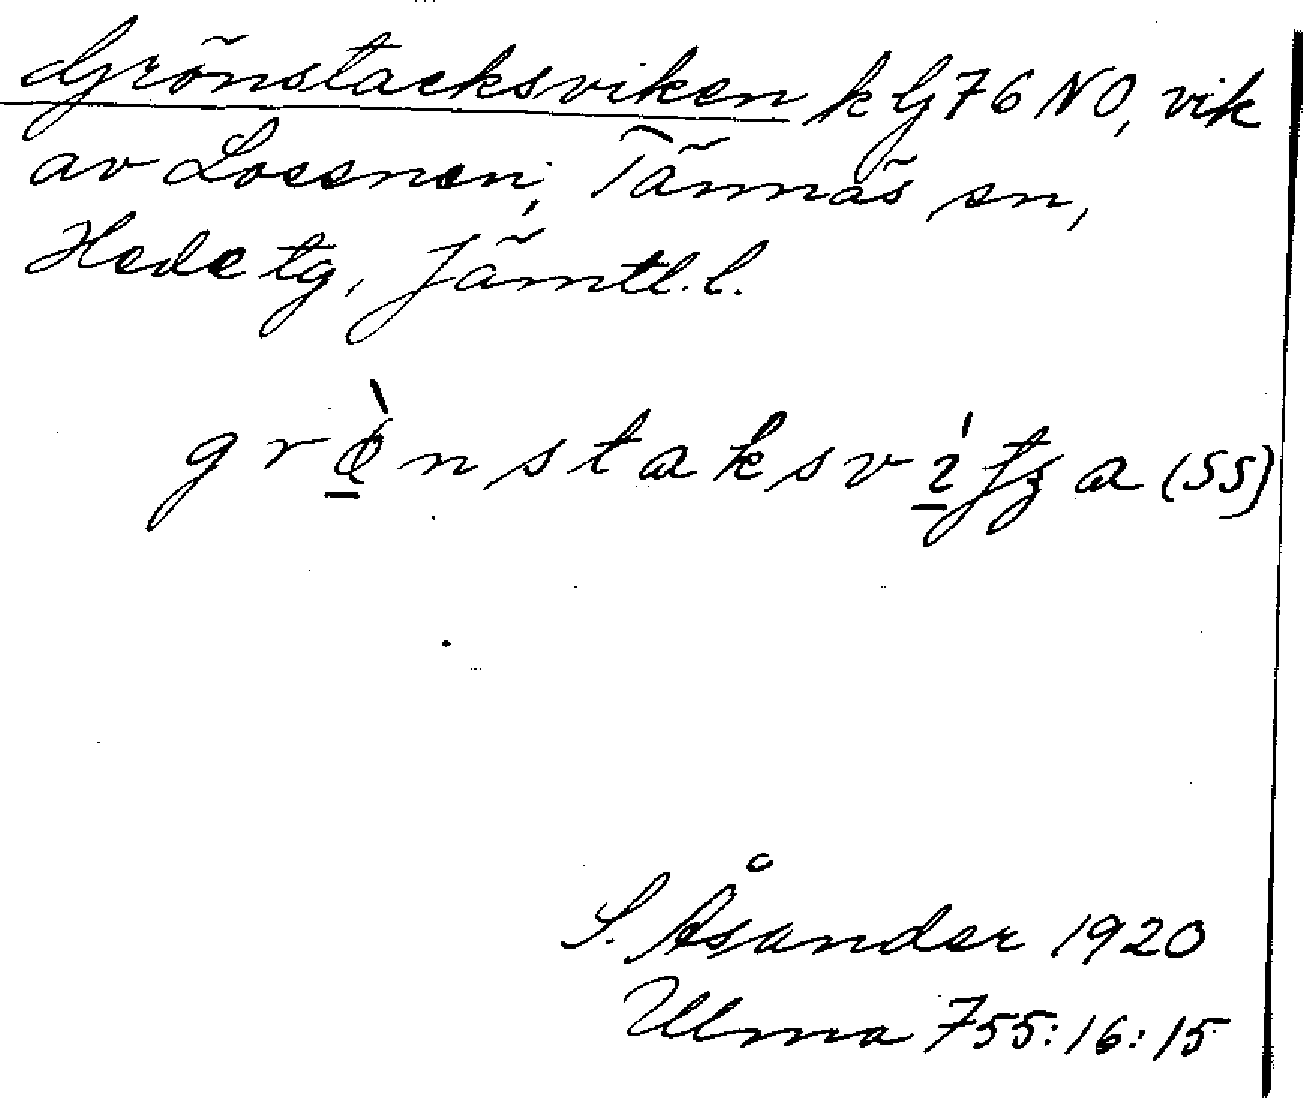 Grönstacksviken k G 76 NO, vik
av Lossnen, Tännäs sn,
Hede tg, Jämtl. l.
(SS)
S. Åsander 1920
Ulma 755:16:15